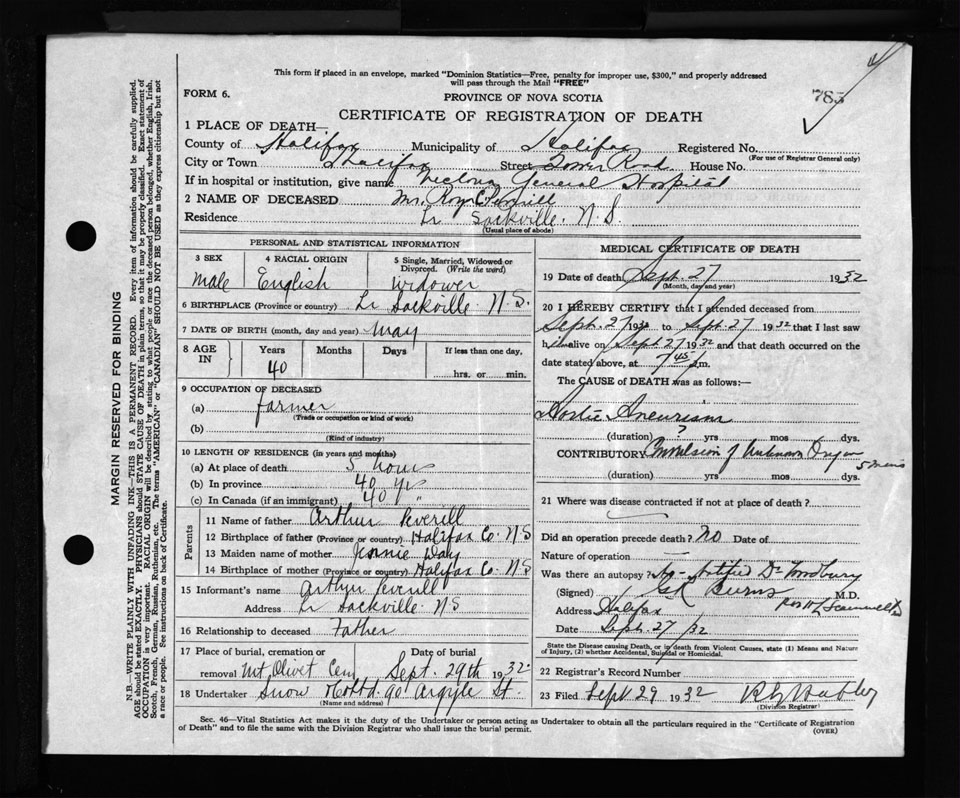 This form if placed in an envelope, marked "Dominion Statistics—Free, penalty for improper use, $300," and properly addressed
will pass through the Mail "FREE"
FORM 6.
PROVINCE OF NOVA SCOTIA
785
CERTIFICATE OF REGISTRATION OF DEATH
1 PLACE OF DEATH—
County of Halifax Municipality of Halifax Registered No.
(For use of Registrar General only)
City or Town Halifax Street Tower Road House No.
If in hospital or institution, give name Victoria General Hospital
2 NAME OF DECEASED Mr. Roy Peverill
Residence Lr Sackville. N.S.
(Usual place of abode)
PERSONAL AND STATISTICAL INFORMATION
3 SEX Male
4 RACIAL ORIGIN English
5 Single, Married, Widowed or Divorced. (Write the word) Widower
6 BIRTHPLACE (Province or country) Lr Sackville N.S.
7 DATE OF BIRTH (month, day and year) May
8 AGE IN Years Months Days If less than one day,
40 hrs. or min.
9 OCCUPATION OF DECEASED
(a) farmer
(Trade or occupation or kind of work)
(b)
(Kind of industry)
10 LENGTH OF RESIDENCE (in years and months)
(a) At place of death 5 hours
(b) In province 40 yrs
(c) In Canada (if an immigrant) 40 "
Parents
11 Name of father Arthur Peverill
12 Birthplace of father (Province or country) Halifax Co. N.S
13 Maiden name of mother Jennie Daly
14 Birthplace of mother (Province or country) Halifax Co. N.S
15 Informant's name Arthur Peverill
Address Lr Sackville. NS
16 Relationship to deceased Father
17 Place of burial, cremation or Date of burial
removal Mt. Olivet Cem Sept. 29th 1932
18 Undertaker Snow & Co Ltd. 90 Argyle St.
(Name and address)
MEDICAL CERTIFICATE OF DEATH
19 Date of death Sept. 27 1932
(Month, day and year)
20 I HEREBY CERTIFY that I attended deceased from
Sept. 27 1932 to Sept. 27 1932 that I last saw
him alive on Sept 27 1932 and that death occurred on the
date stated above, at 7 45 m.
The CAUSE OF DEATH was as follows:—
Aortic Aneurism
(duration) ? yrs mos dys.
CONTRIBUTORY Convulsion of Unknown Origin
(duration) yrs mos dys. 5 mins
21 Where was disease contracted if not at place of death?
Did an operation precede death? NO Date of
Nature of operation —
Was there an autopsy? No - Notified Dr Woodbury
(Signed) Burns M.D.
Address Halifax
Date Sept 27/32
State the Disease causing Death, or in death from Violent Causes, state (1) Means and Nature
of Injury, (2) whether Accidental, Suicidal or Homicidal.
22 Registrar's Record Number
23 Filed Sept 29 1932
(Division Registrar)
Sec. 46—Vital Statistics Act makes it the duty of the Undertaker or person acting as Undertaker to obtain all the particulars required in the "Certificate of Registration
of Death" and to file the same with the Division Registrar who shall issue the burial permit. (OVER)
MARGIN RESERVED FOR BINDING
N.B.—WRITE PLAINLY WITH UNFADING INK—THIS IS A PERMANENT RECORD. Every item of information should be carefully supplied.
AGE should be stated EXACTLY. PHYSICIANS should STATE CAUSE OF DEATH in plain terms, so that it may be properly classified. Exact statement of
OCCUPATION is very important. RACIAL ORIGIN will be described by stating to what people or race the deceased person belonged, whether English, Irish,
Scotch, French, German, Russian, Ruthenian, etc. The terms "AMERICAN" or "CANADIAN" SHOULD NOT BE USED as they express citizenship but not
a race or people. See instructions on back of Certificate.